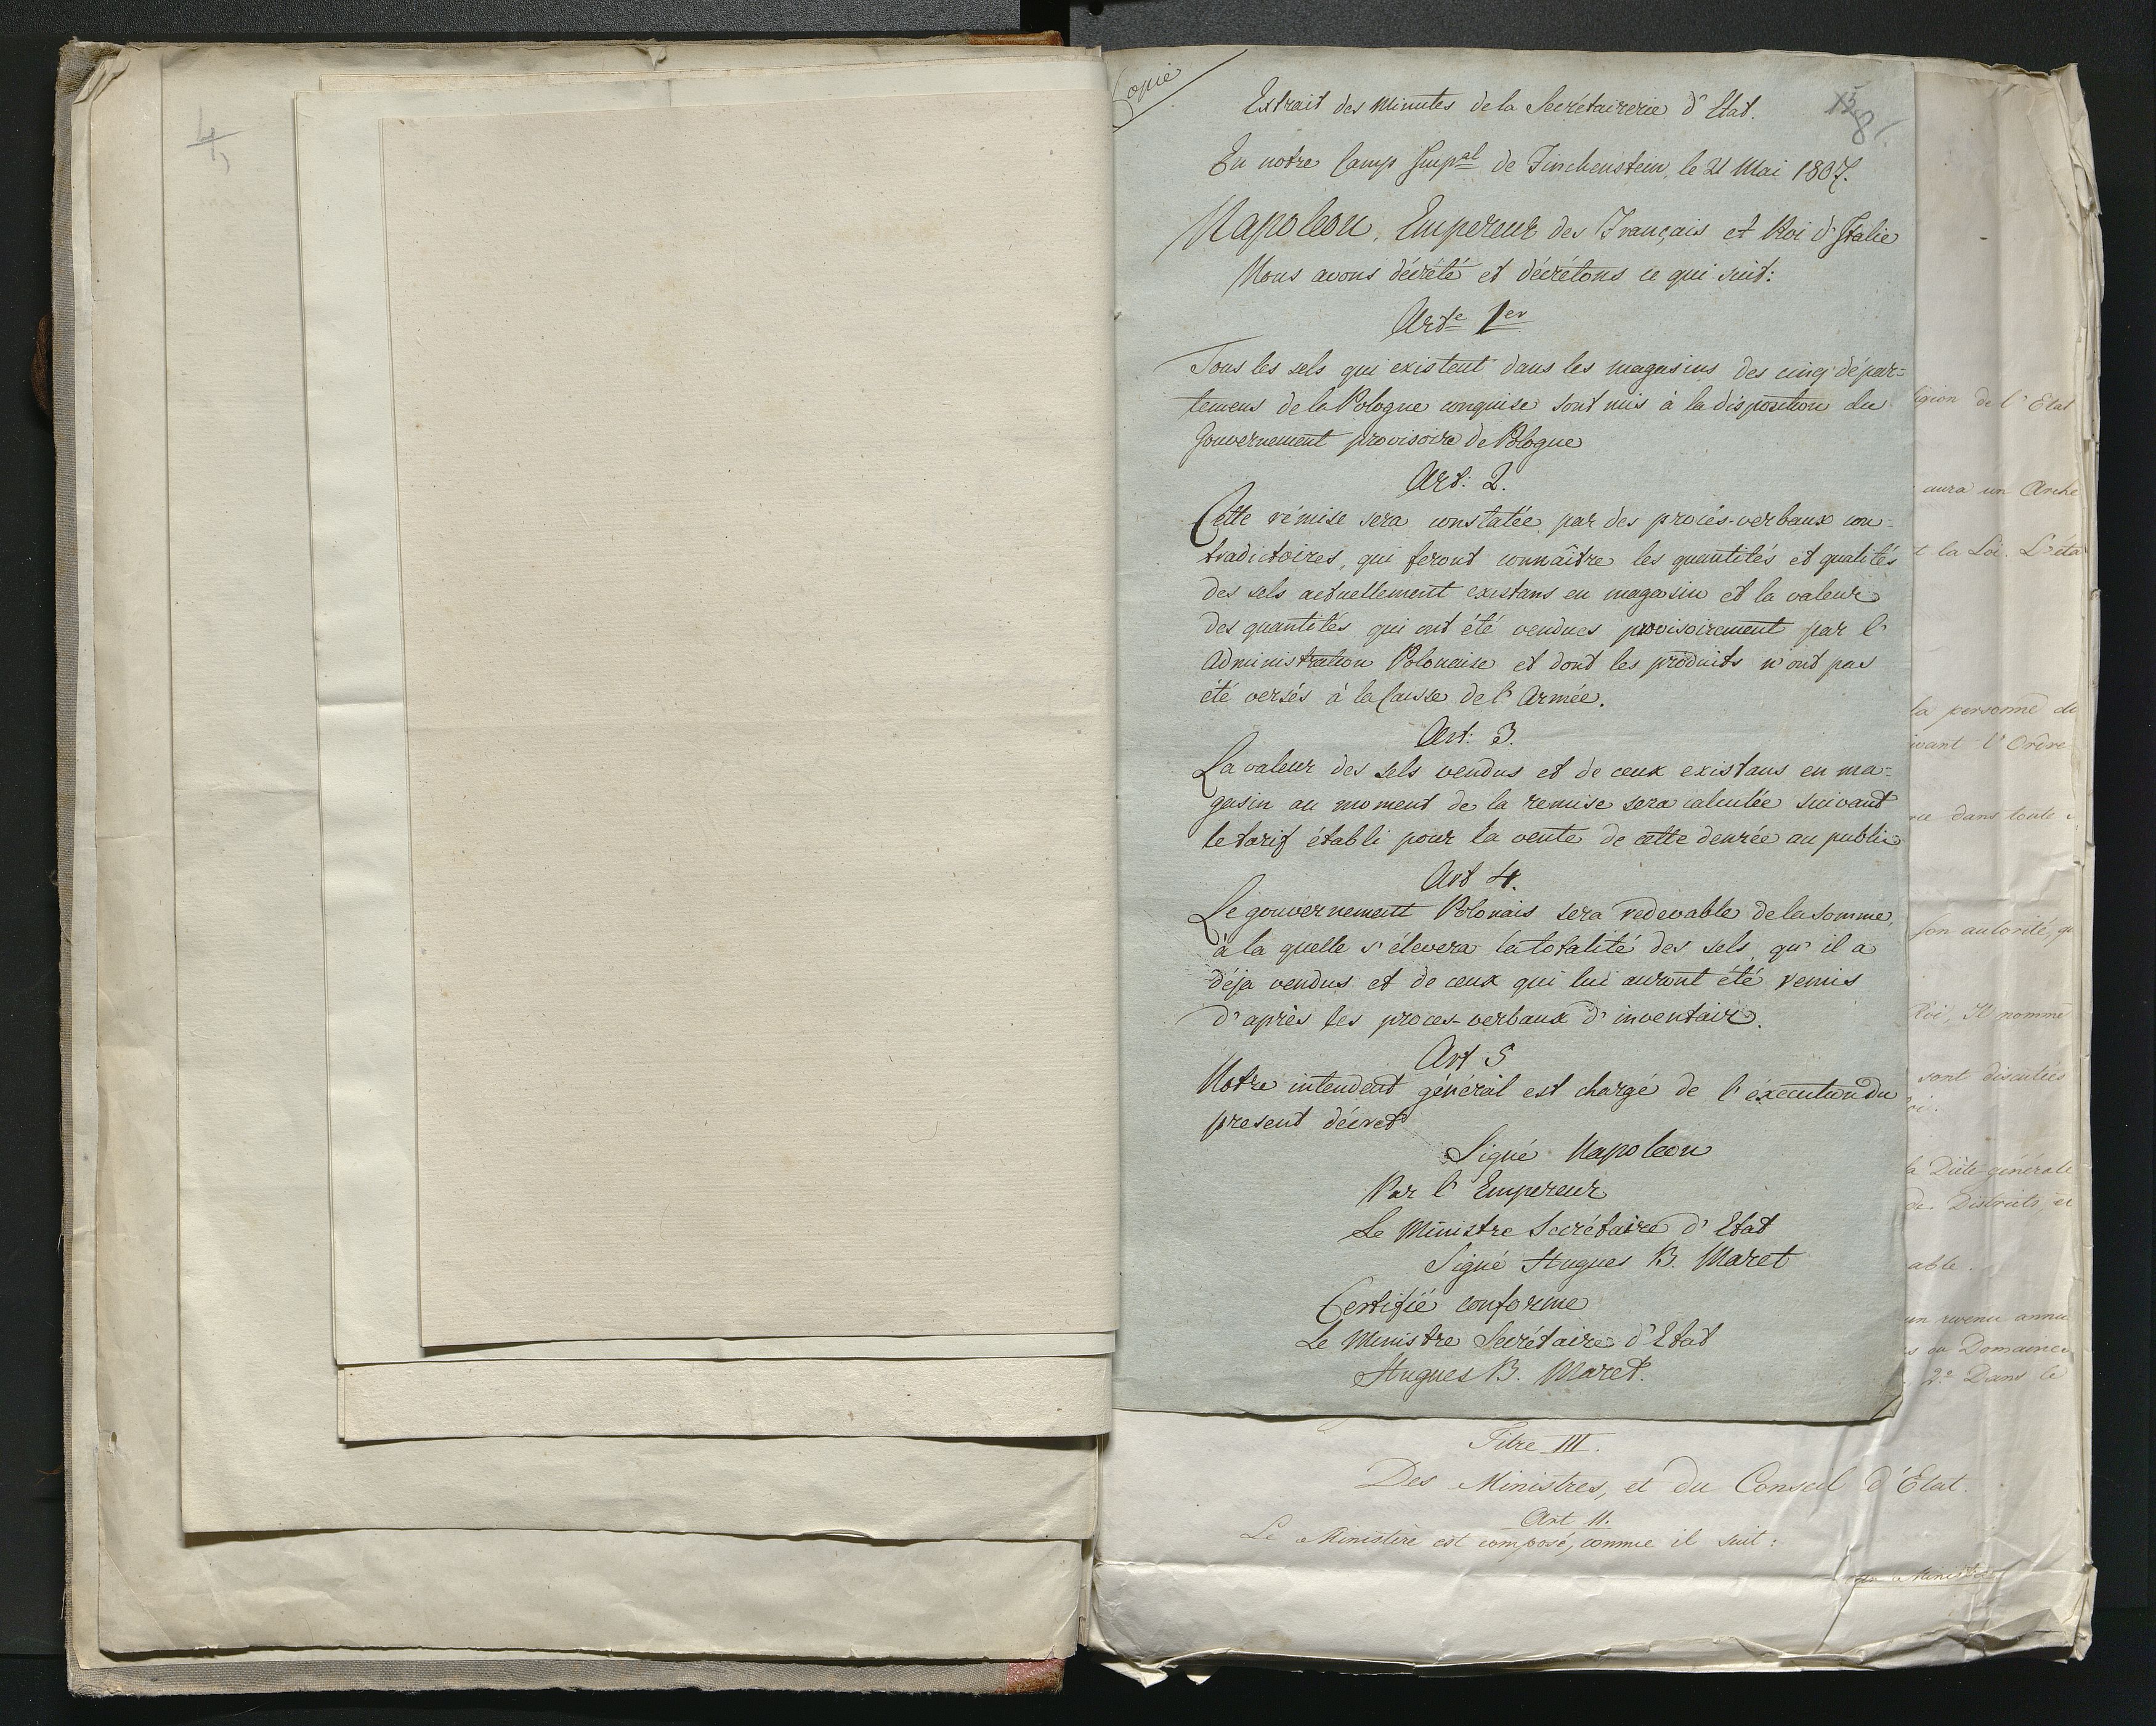 4
Copie
Extrait des Minutes de la Secrétairerie d'Etat.
8
En notre Camp Imp<sup>al</sup> de Finchenstein, le 21 Mai 1807.
Napoleon, Empereur des Français et Roi d'Italie
Nous avons décrété et décrétons ce qui suit:
Art<sup>e</sup> 1<sup>er</sup>
Tous les sels qui existent dans les magasins des cinq dépar=
temens de la Pologne conquise sont mis à la disposition du
Gouvernement provisoire de Pologne
Art: 2.
Cette rémise sera constatée par des procés-verbaux con=
tradictoires, qui feront connaître les quantités et qualités
des sels actuellement existans en magasin et la valeur
des quantités qui ont été vendues provisoirement par l'
Administration Polonaise et dont les produits n'ont pas
été versés à la Caisse de l'Armée.
Art: 3.
La valeur des sels vendus et de ceux existans en ma=
gasin au moment de la remise sera calculée suivant
le tarif établi pour la vente de cette denrée au public
Art 4.
Le gouvernement Polonais sera redevable de la somme,
à la quelle s'élevera la totalité des sels, qu'il a
déja vendus et de ceux qui lui auront été remis
d'après les proces-verbaux d'inventair.
Art 5
Notre intendent général est chargé de l'éxecution du
present décret
Signé Napoleon
Par l'Empereur
Le Ministre Secrétaire d'Etat
Signé Hugues B. Maret
Certifié conforme
Le Ministre Secrétaire d'Etat
Hugues B. Maret.
igion de l'Etat
aura un Arche
t la Loi. L'éta
la personne de
ivant l'Ordre
dans toute
son autorité, qu
Roi, Il nomme
sont discutées
oi.
la Diète générale
de Districts, et
able.
un revenu annu
s ou Domaines
2.° Dans le
Titre III.
Des Ministres, et du Conseil d'Etat.
Art 11.
Le Ministère est composé, comme il suit:
Ministre